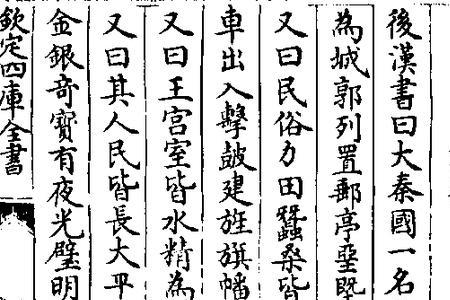 後漢書曰大秦國一名
為城郭列置郵亭堊旣
又曰民俗力田蠶桑皆
車出入擊鼓建旌旗幡
又曰王宮室皆水精為
又曰其人民皆長大平
金銀奇寶有夜光璧明
欽定四庫全書